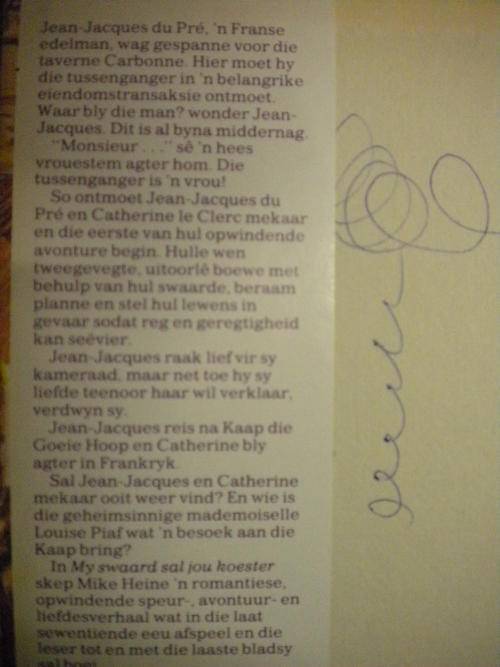 Jean-Jacques du Pré, 'n Franse
edelman, wag gespanne voor die
taverne Carbonne. Hier moet hy
die tussenganger in 'n belangrike
eiendomstransaksie ontmoet.
Waar bly die man? wonder Jean-
Jacques. Dit is al byna middernag.
"Monsieur . . ." sê 'n hees
vrouestem agter hom. Die
tussenganger is 'n vrou!
So ontmoet Jean-Jacques du
Pré en Catherine le Clerc mekaar
en die eerste van hul opwindende
avonture begin. Hulle wen
tweegevegte, uitoorlê boewe met
behulp van hul swaarde, beraam
planne en stel hul lewens in
gevaar sodat reg en geregtigheid
kan seëvier.
Jean-Jacques raak lief vir sy
kameraad, maar net toe hy sy
liefde teenoor haar wil verklaar,
verdwyn sy.
Jean-Jacques reis na Kaap die
Goeie Hoop en Catherine bly
agter in Frankryk.
Sal Jean-Jacques en Catherine
mekaar ooit weer vind? En wie is
die geheimsinnige mademoiselle
Louise Piaf wat 'n besoek aan die
Kaap bring?
In My swaard sal jou koester
skep Mike Heine 'n romantiese,
opwindende speur-, avontuur- en
liefdesverhaal wat in die laat
sewentiende eeu afspeel en die
leser tot en met die laaste bladsy
sal boei